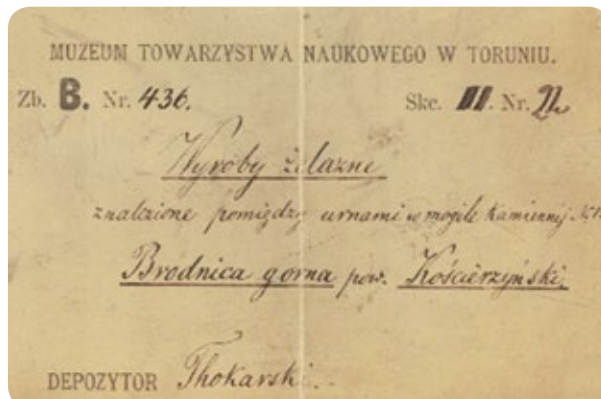 MUZEUM TOWARZYSTWA NAUKOWEGO W TORUNIU.
Zb. B. Nr. 436. Skc. III. Nr. 22
Wyroby żelazne
znalezione pomiędzy urnami w mogile kamiennej
Brodnica górna pow. Kościerzyński.
DEPOZYTOR Thokarski.